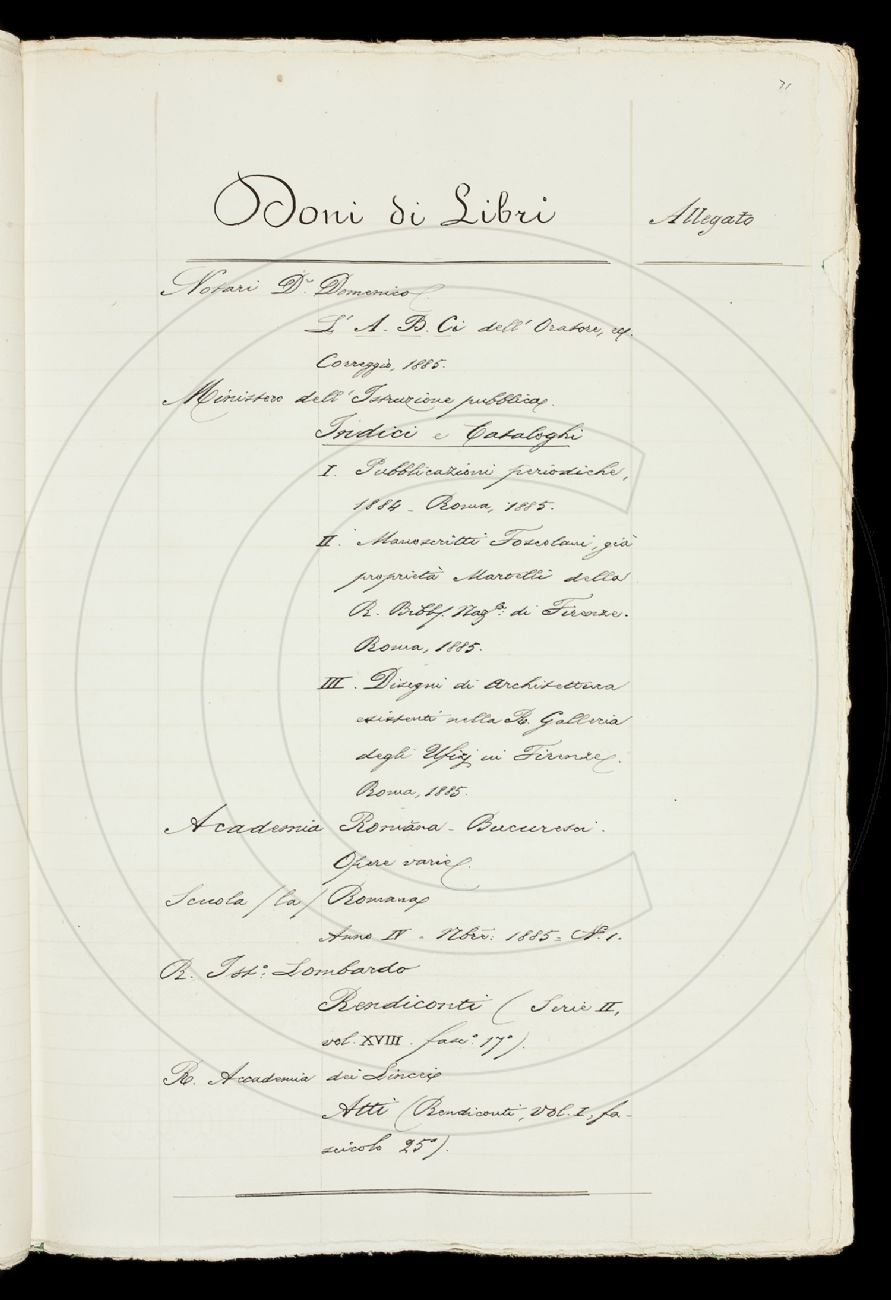 71
Doni di Libri
Allegato
Notari Dr. Domenico
L' A. B. Ci dell' Oratore, ec.
Correggio, 1885.
Ministero dell' Istruzione pubblica.
Indici e Cataloghi
I. Pubblicazioni periodiche,
1884 - Roma, 1885.
II. Manoscritti Foscolani, già
proprietà Martelli della
R. Bibl. Nazle. di Firenze.
Roma, 1885.
III. Disegni di architettura
esistenti nella R. Galleria
degli Ufizj in Firenze.
Roma, 1885.
Academia Română - Bucuresci.
Opere varie.
Scuola /la/ Romana
Anno IV - Nbre: 1885 = N. 1.
R. Isto: Lombardo
Rendiconti (Serie II,
vol. XVIII. fasco. 17°).
R. Accademia dei Lincei
Atti (Rendiconti, Vol. I, fa-
scicolo 25°).